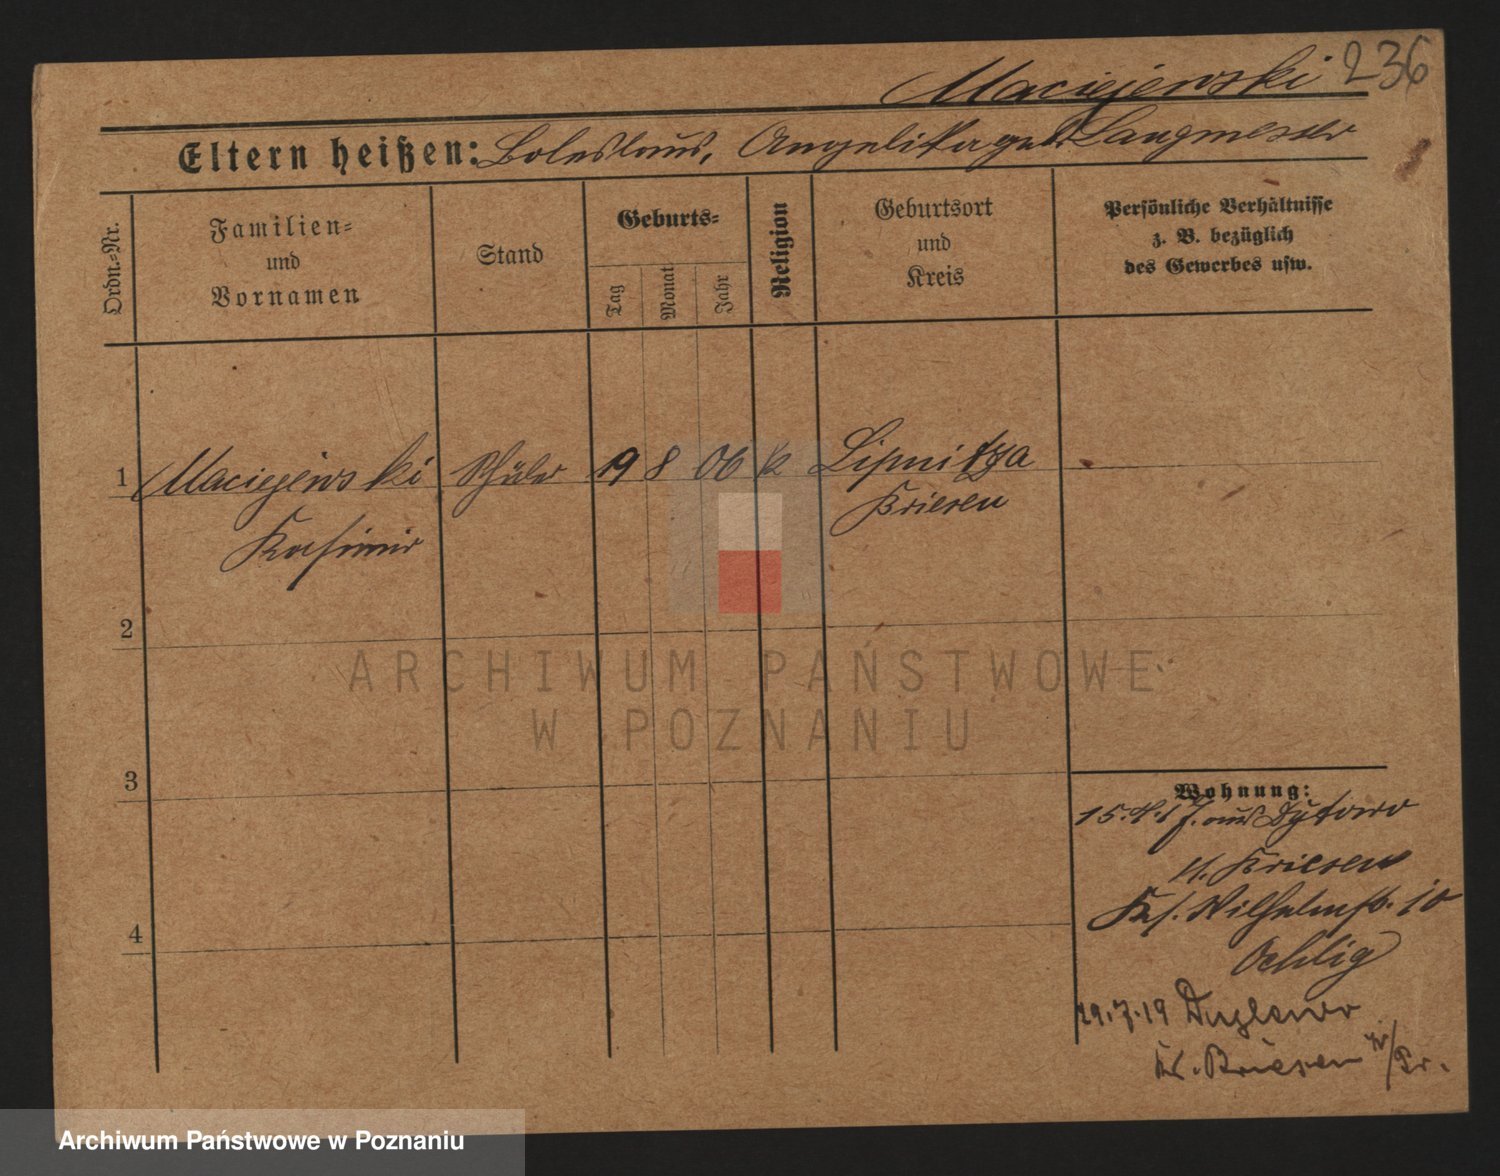 Maciejewski 236
Eltern heißen: Boleslaus, Angelika geb. Langmesser
Ordn.-Nr.
Familien-
und
Vornamen
Stand
Geburts-
Tag
Monat
Jahr
Religion
Geburtsort
und
Kreis
Persönliche Verhältnisse
z. B. bezüglich
des Gewerbes usw.
1 Maciejewski Schüler 19 8 06 k Lipnitza
Briesen
Kasimir
2
3
4
ARCHIWUM PAŃSTWOWE
W POZNANIU
Wohnung:
15. aus
Kr. Briesen
Ks. Wilhelmstr. 10
Oehlig
29.7.19
Kr. Briesen W/Pr.
Archiwum Państwowe w Poznaniu